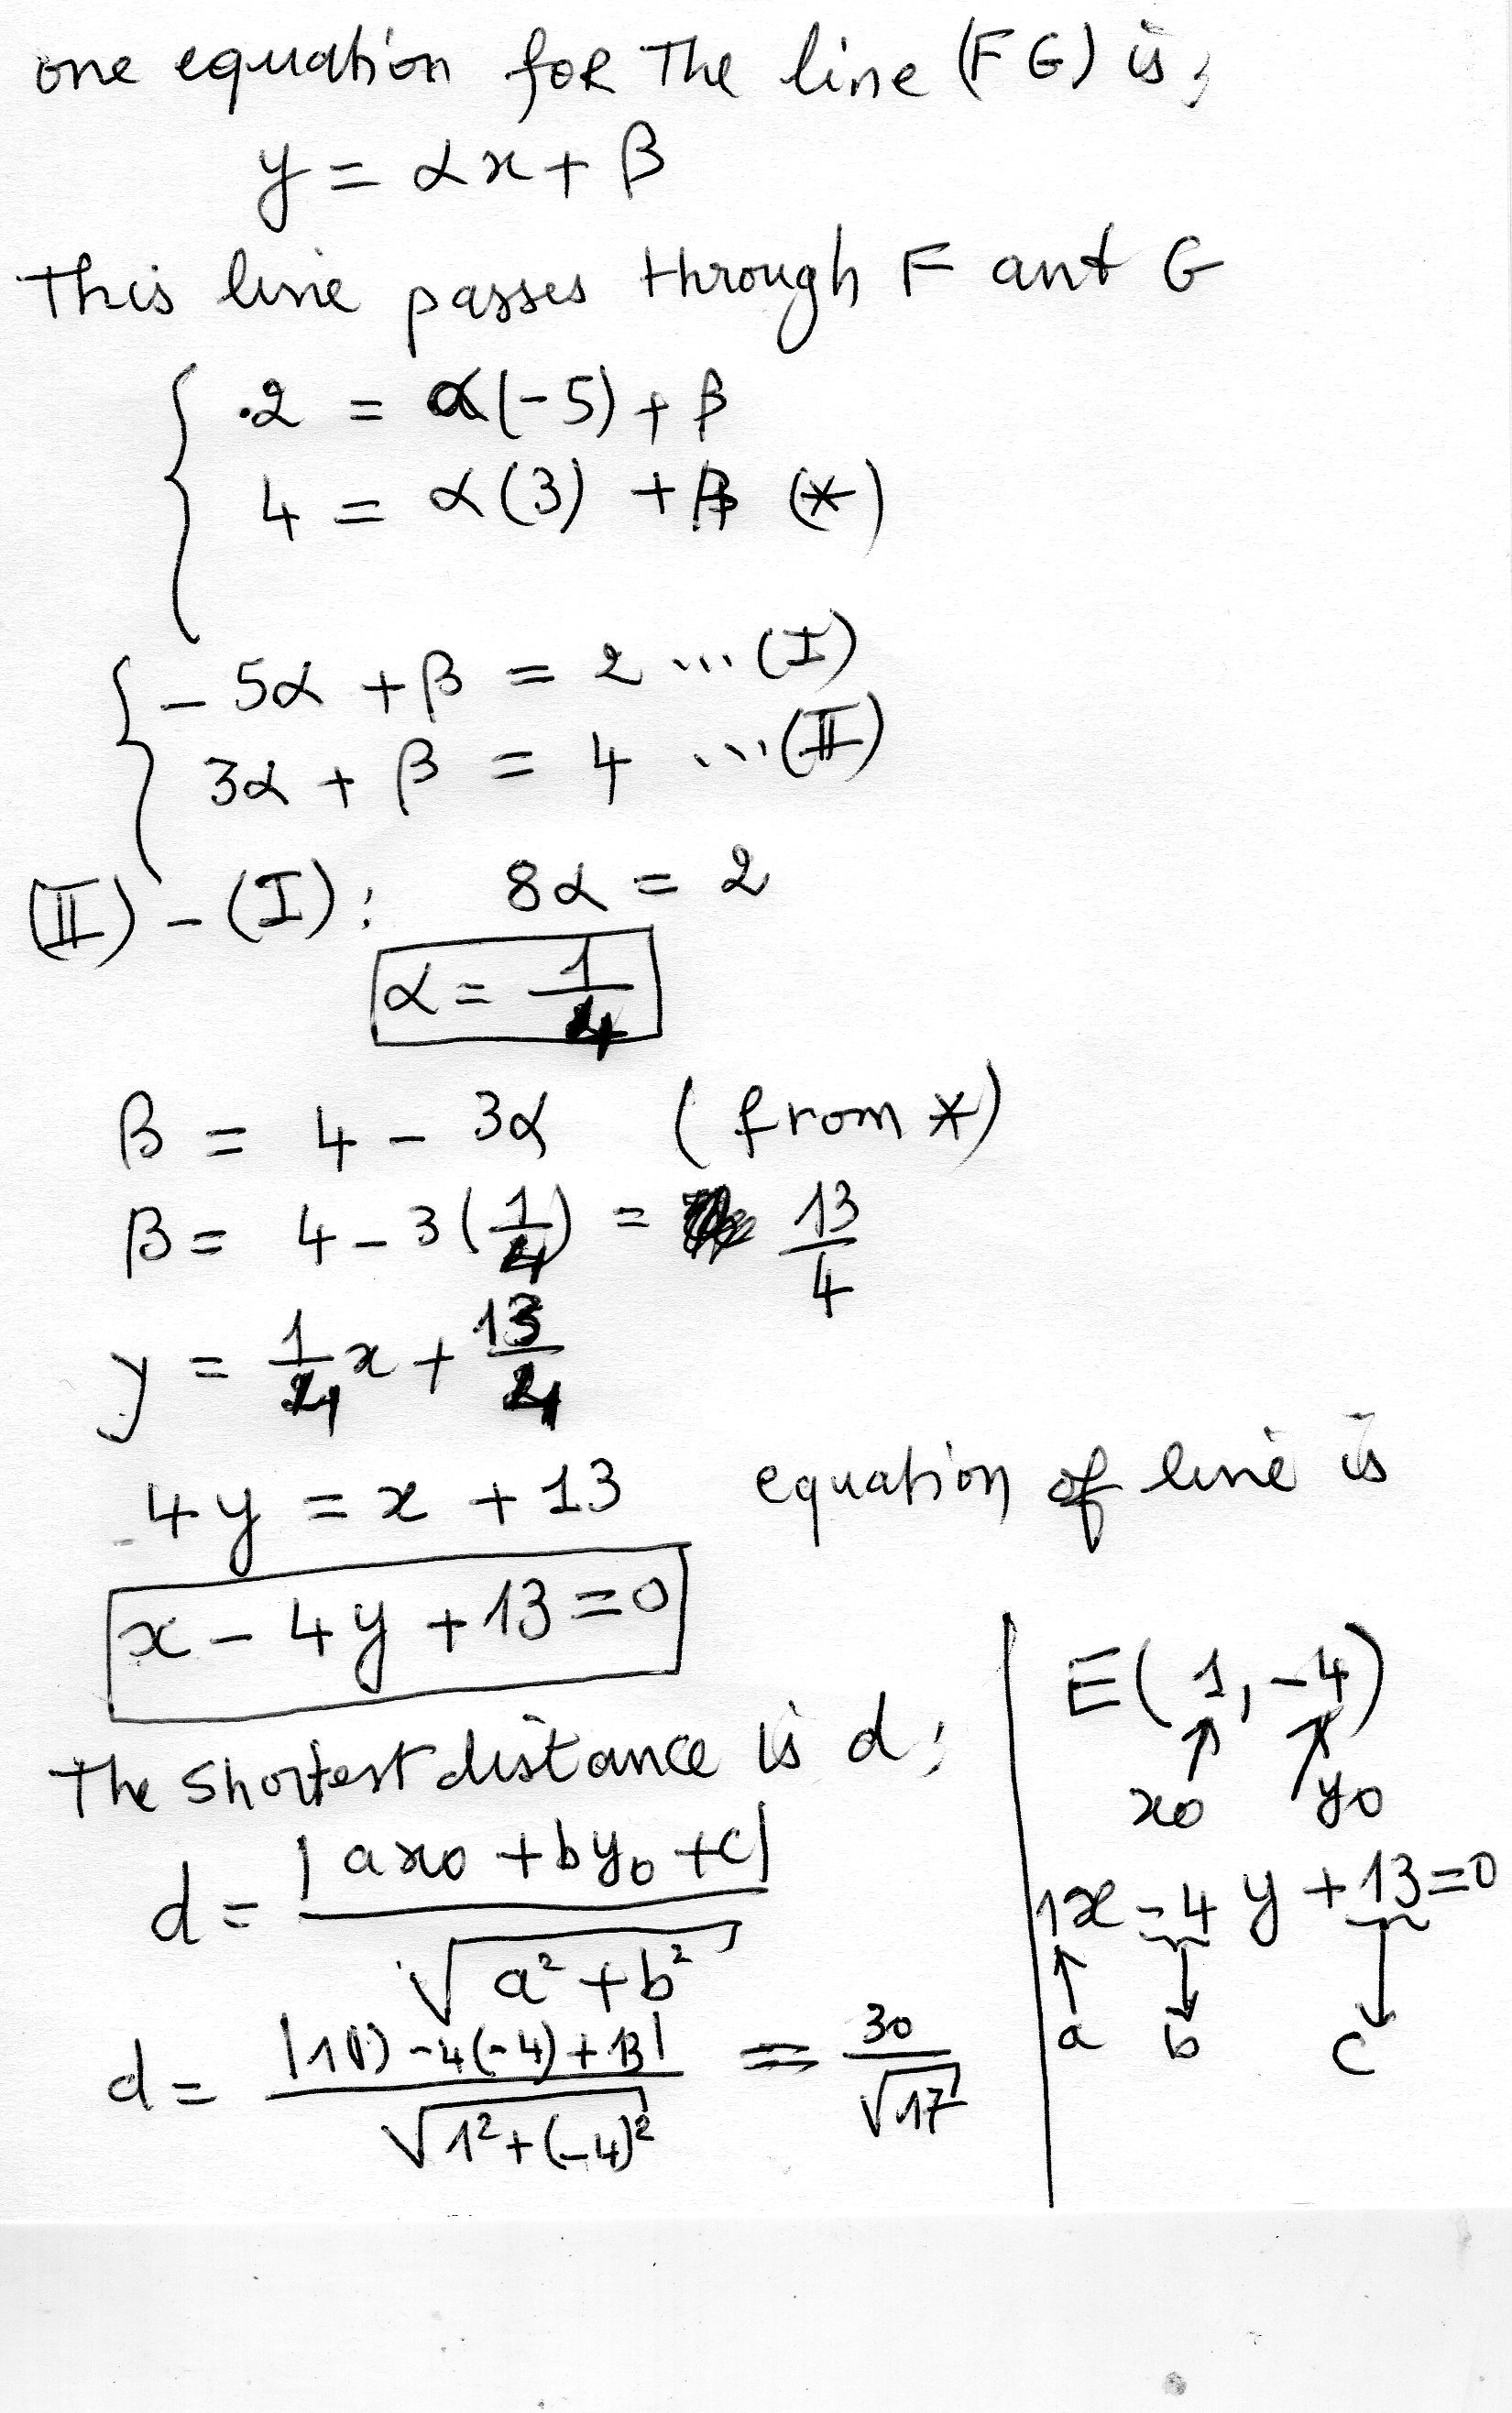 one equation for The line (FG) is,
y = αx + β
This line passes through F ant G
.2 = α(-5) + β
4 = α(3) + β (*)
- 5α + β = 2 ... (I)
3α + β = 4 ... (II)
(II) - (I): 8α = 2
α = 1/4
β = 4 - 3α (from *)
β = 4 - 3(1/4) = 13/4
y = 1/4 x + 13/4
4y = x + 13 equation of line is
x - 4y + 13 = 0
The shortest distance is d:
d = |ax0 + by0 + c| / √(a² + b²)
d = |1(1) - 4(-4) + 13| / √(1² + (-4)²) = 30/√17
E(1, -4)
x0 y0
1x - 4y + 13 = 0
a b c